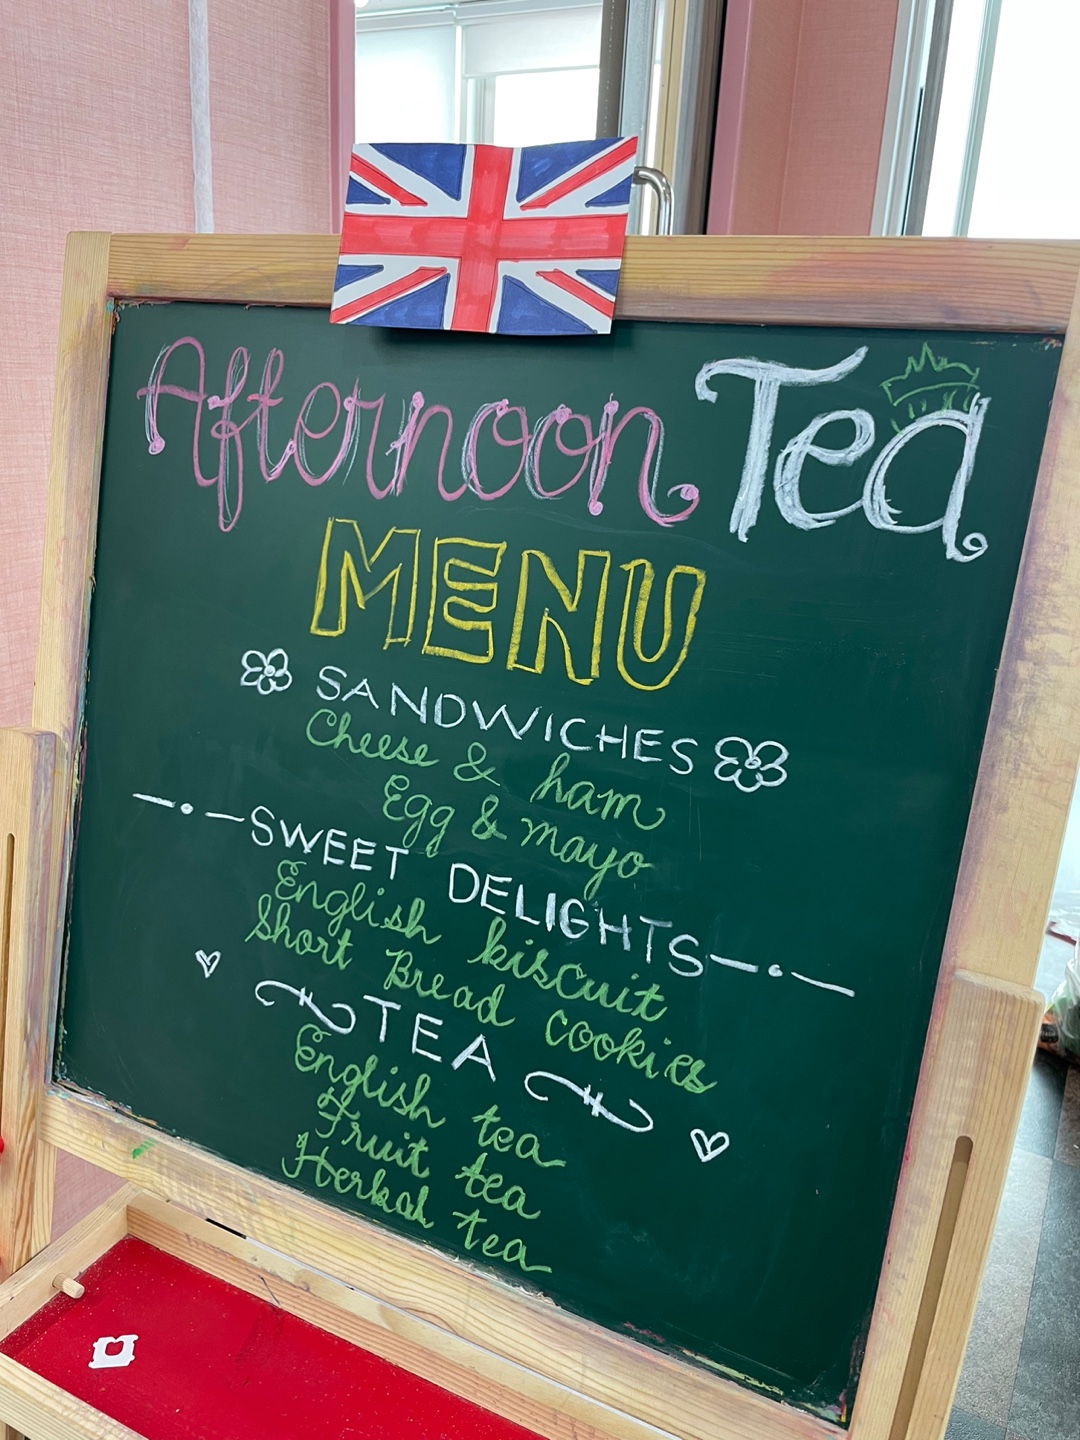 Afternoon Tea
MENU
SANDWICHES
Cheese & ham
Egg & mayo
SWEET DELIGHTS
English biscuit
Short Bread cookies
TEA
English tea
Fruit tea
Herbal tea